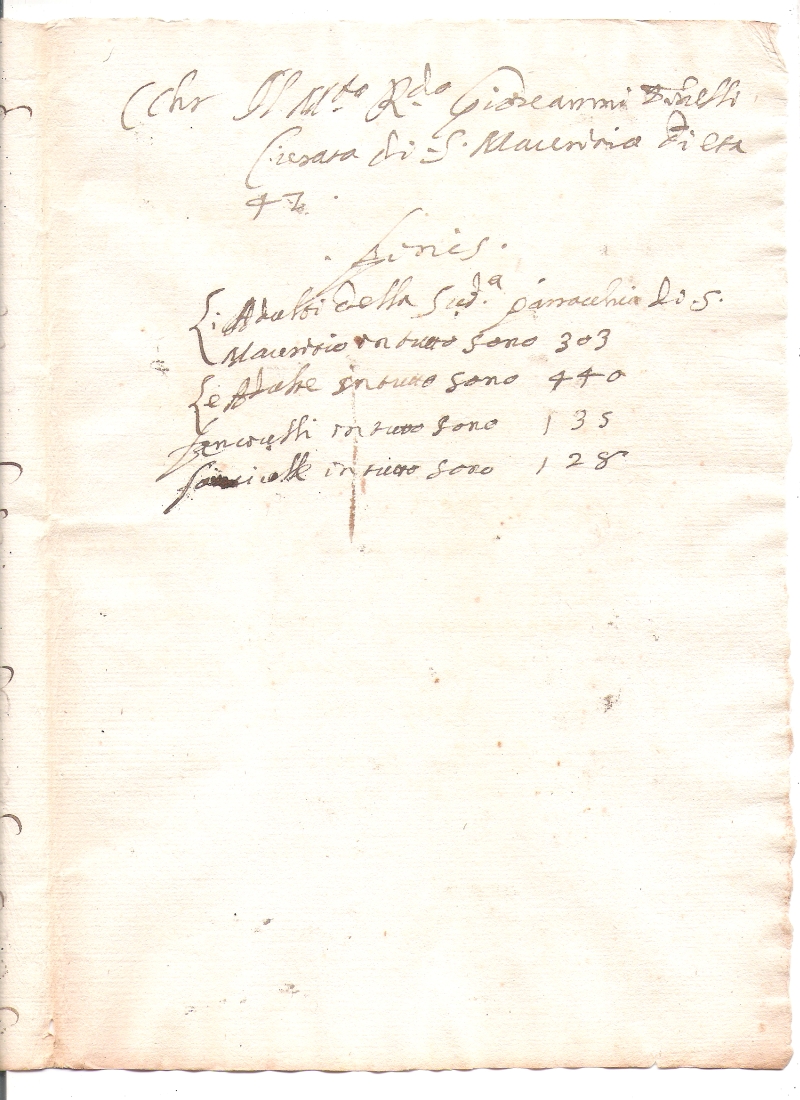 C Chr Il M.to R.do Gioseanni
Curato di S. Mauritio di età
42.
. finis .
Li Adulti della Sud.a parrocchia di S.
Mauritio in tutto sono 303
Le Adulte in tutto sono 440
fanciulli in tutto sono 135
fanciulle in tutto sono 128